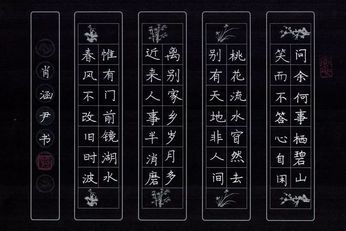 问余何事栖碧山
笑而不答心自闲
桃花流水窅然去
别有天地非人间
离别家乡岁月多
近来人事半消磨
惟有门前镜湖水
春风不改旧时波
肖涵尹书